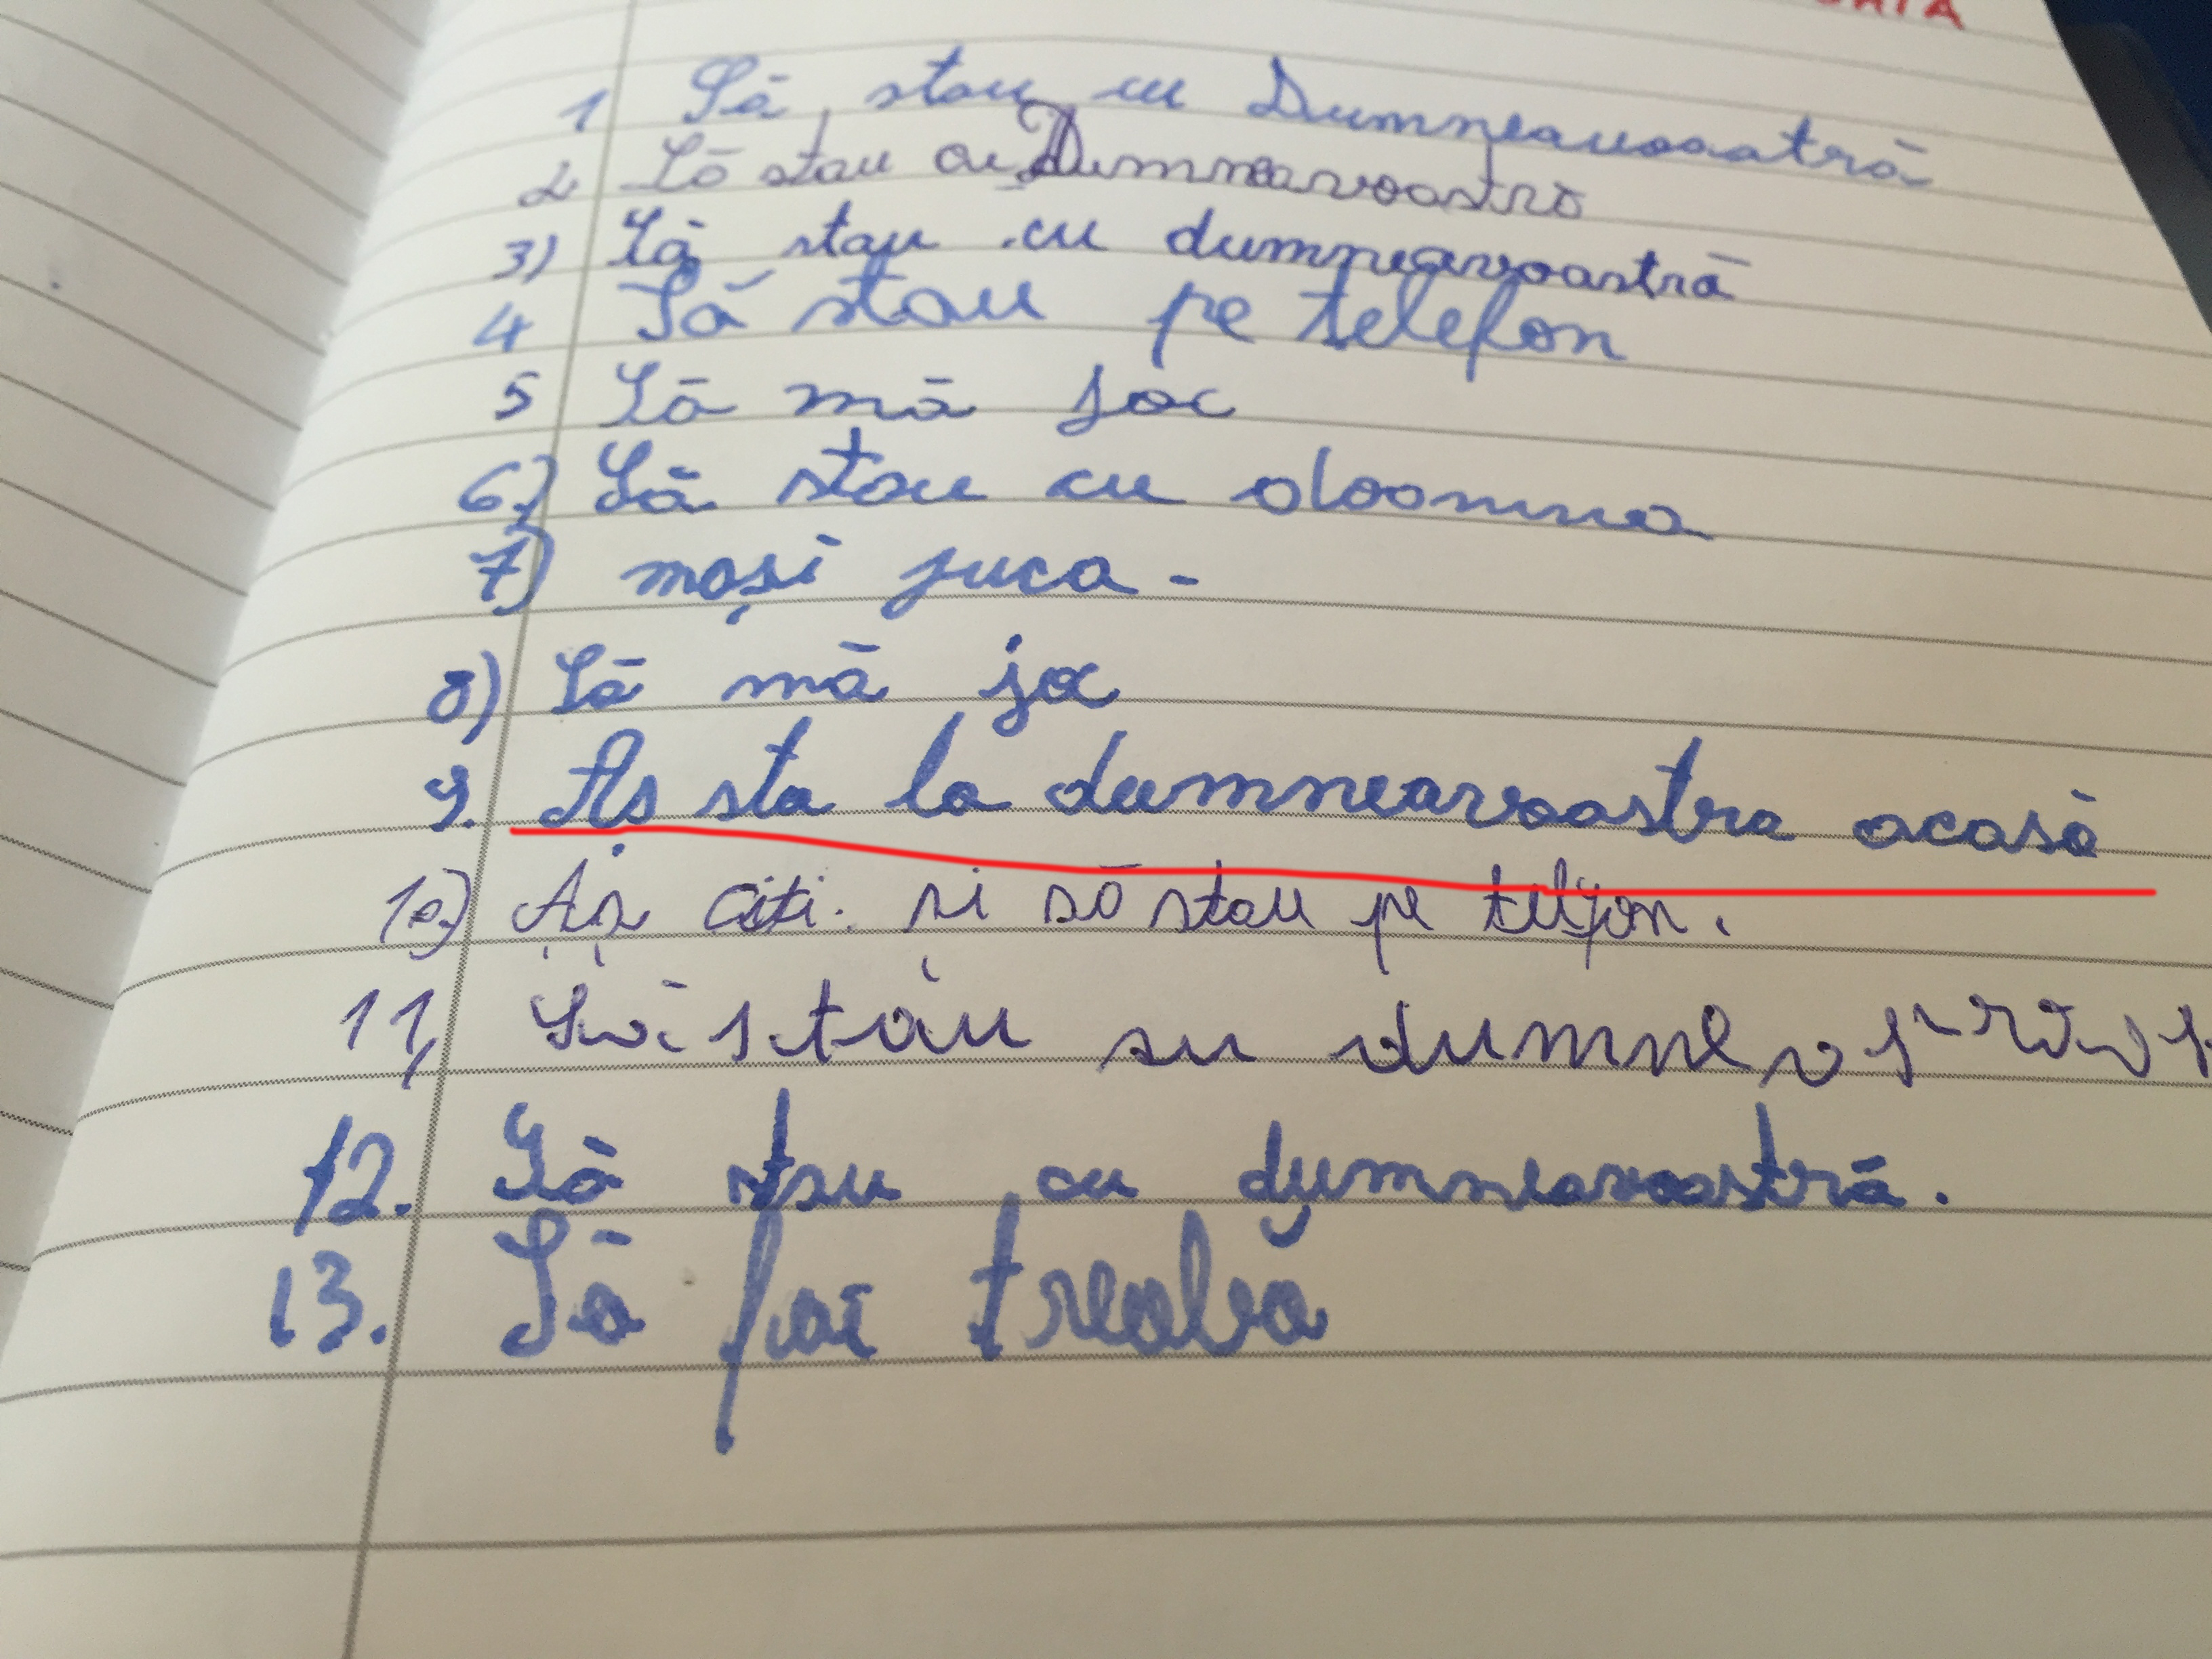 1 Să stau cu Dumneavoastră
2 Să stau cu Dumneavoastră
3) Să stau cu dumneavoastră
4 Să stau pe telefon
5 Să mă joc
6) Să stau cu doamna
7) mași juca -
8) Să mă joc
9. Aș sta la dumneavoastra acasă
10) Aș citi. și să stau pe telefon.
11, Să stau su
12. Să stau cu dumneavoastră.
13. Să fac treabă